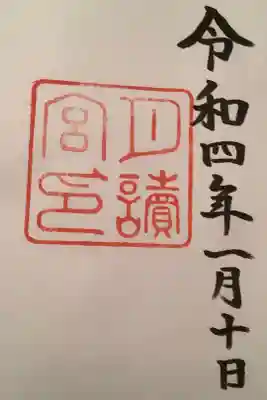 令和四年一月十日
月讀宮印